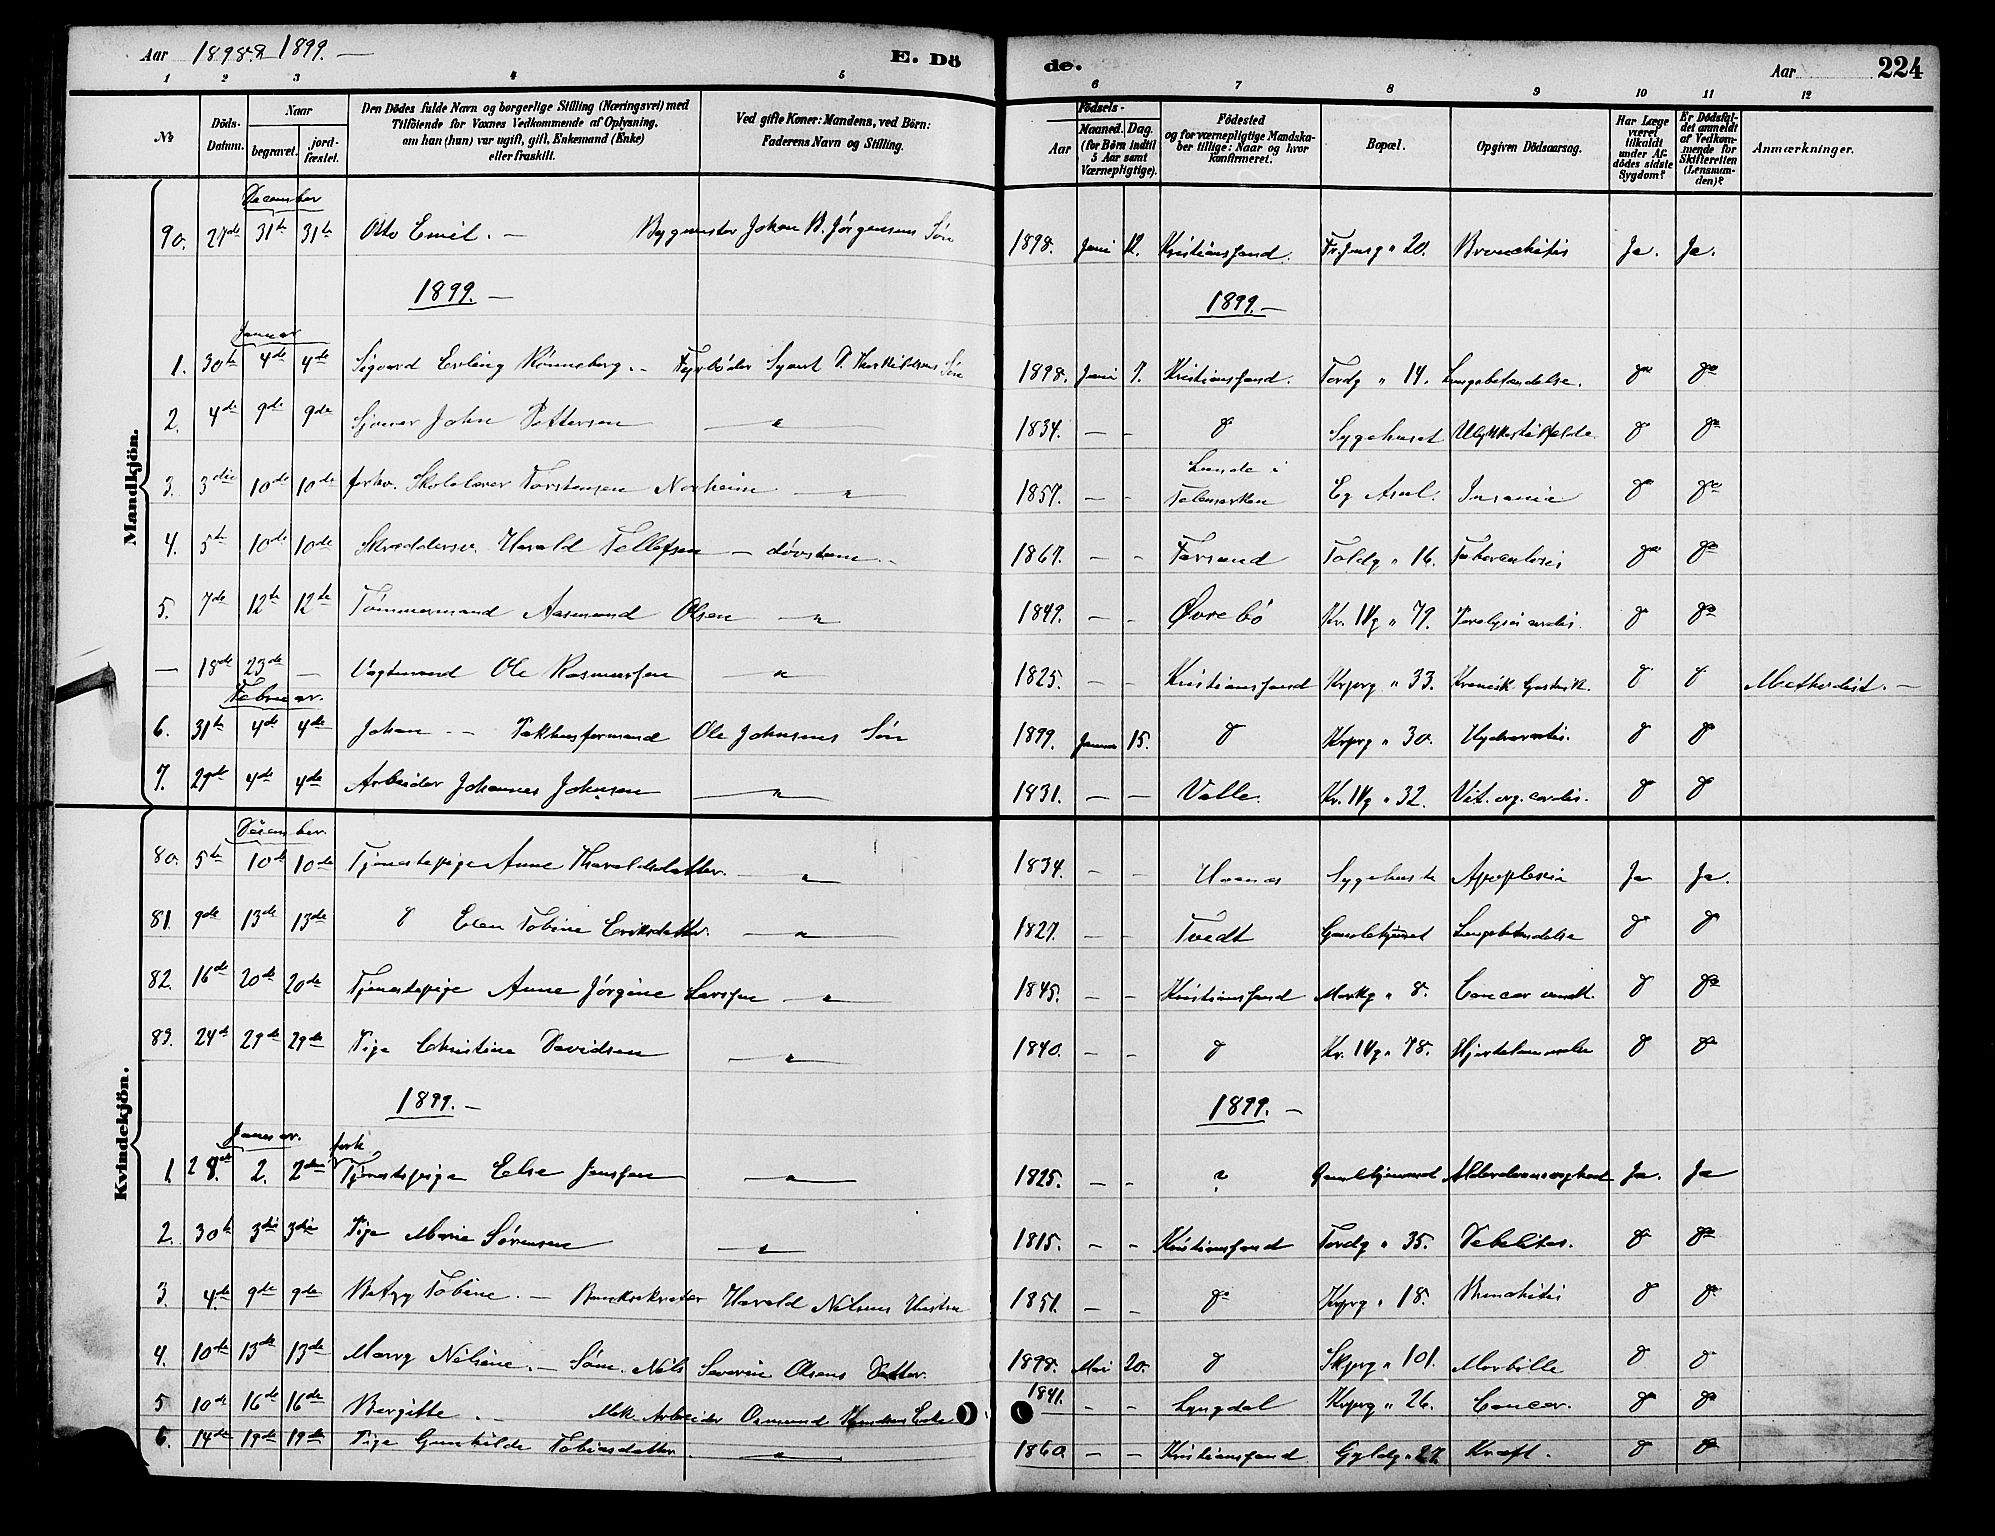 Aar 1898 & 1899. —
E. Dö
de.
Aar
224
1 2 3 4 5 6 7 8 9 10 11 12
№
Döds-Datum.
Naar
begravet.
jord-fæstet.
Den Dödes fulde Navn og borgerlige Stilling (Næringsvei) med
Tilföiende for Voxnes Vedkommende af Oplysning,
om han (hun) var ugift, gift, Enkemand (Enke)
eller fraskilt.
Ved gifte Koner: Mandens, ved Börn:
Faderens Navn og Stilling.
Födsels-
Aar
Maaned. Dag.
(for Börn indtil
5 Aar samt
Værnepligtige).
Födested
og for værnepligtige Mandska-
ber tillige: Naar og hvor
konfirmeret.
Bopæl.
Opgiven Dödsaarsag.
Har Læge
været
tilkaldt
under Af-
dödes sidste
Sygdom?
Er Dödsfal-
det anmeldt
af Vedkom-
mende for
Skifteretten
(Lensman-
den)?
Anmærkninger.
Mandkjön.
December
90. 27de 31te 31te Otto Emil. — Bygmester Johan B. Jørgensens Søn 1898. Juni 12. Kristianssand. Fr. Jensg " 20. Bronchitis Ja. Ja.
1899. — 1899. —
Januar
1. 30te 4de 4de Sigvard Erling Rönneberg. — Fyrböder Syvert Søn 1898. Juni 7. Kristianssand. Tordg " 14. Lungebetændelse. do do
2. 4de 9de 9de Sjömand John Pettersen — " — 1834. — — do Sygehuset Ulykkestilfælde do do
3. 3die 10de 10de forhv. Skolelærer Torstensen Norheim — " — 1857. — — Lunde i Telemarken Eg Asyl. Insania do do
4. 5te 10de 10de Skræddersv. Harald Tellefsen — døvstum. — 1867. — — Farsund Toldg " 16. Tuberculosis do do
5. 7de 12te 12te Tömmermand Aasmund Olsen — " — 1849. — — Øvrebö Kr. IVg " 79. Paralysis cordis. do do
— 18de 23de — Vagtmand Ole Rasmussen " 1825. — — Kristianssand Krprg " 33. Kronisk Gastrik. do do Methodist. —
Februar.
6. 31te 4de 4de Johan — Pakhusformand Ole Johnsens Søn 1899. Januar 15. do Krprg " 30. do do
7. 29de 4de 4de Arbeider Johannes Johnsen — " — 1831. — — Valle. Kr. IVg " 32. Vit. org. cordis. do do
Kvindekjön.
December.
80. 5te 10de 10de Tjenestepige Anne Haraldsdatter. — " — 1834. — — Sygehuset Apoplexia Ja Ja.
81. 9de 13de 13de do Elen Tobine Eriksdatter. — " — 1827. — — Tvedt Gamlehjemmet Lungebetændelse do do
82. 16de 20de 20de Tjenestepige Anne Jørgine Larssen — " — 1845. — — Kristianssand Markg " 8. Cancer ventr. do do
83. 24de 29de 29de Pige Christine Davidsen — " — 1840. — — do Kr. IVg " 78. Hjertelammelse do do
1899. — 1899. —
Januar.
1. 28de 2. 2den forh. Tjenestepige Else Jenssen — " — 1825. — — ? Gamlehjemmet Alderdomssvaghed Ja. Ja
2. 30te 3die 3die Pige Marie Sørensen — " — 1815. — — Kristianssand Tordg " 35. Debilitas. do do
3. 4de 9de 9de Betzy Tobine. — Banksekretær Harald Nilsens Hustru 1851. — — do Krprg " 18. Bronchitis do do
4. 10de 13de 13de Marry Nilsine. — Søm. Nils Severin Olsens Datter. 1898. Mai 20. do Skprg " 101. Morbille do do
5 10de 16de 16de Bergitte. — Mek. Arbeider Osmund Enke 1841. — — Lyngdal Krprg " 26. Cancer. do do
6. 14de 19de 19de Pige Gunhilde Tobiasdatter. — " — 1860 — — Kristianssand Gyldg " 27 Kræft. do do